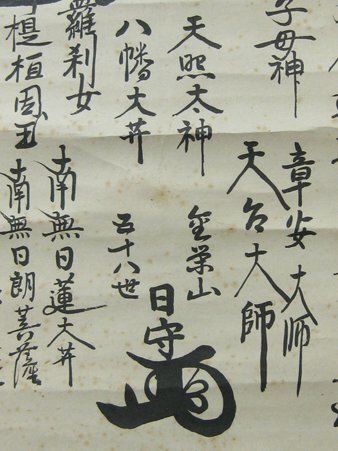 子母神
章安大師
天台大師
天照太神
金栄山
日守
八幡大井
五十八世
羅刹女
南無日蓮大井
南無日朗菩薩